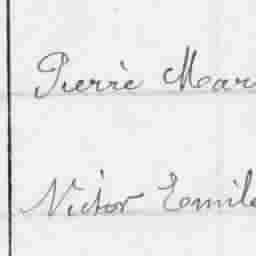 Pierre Mar
Victor Emile